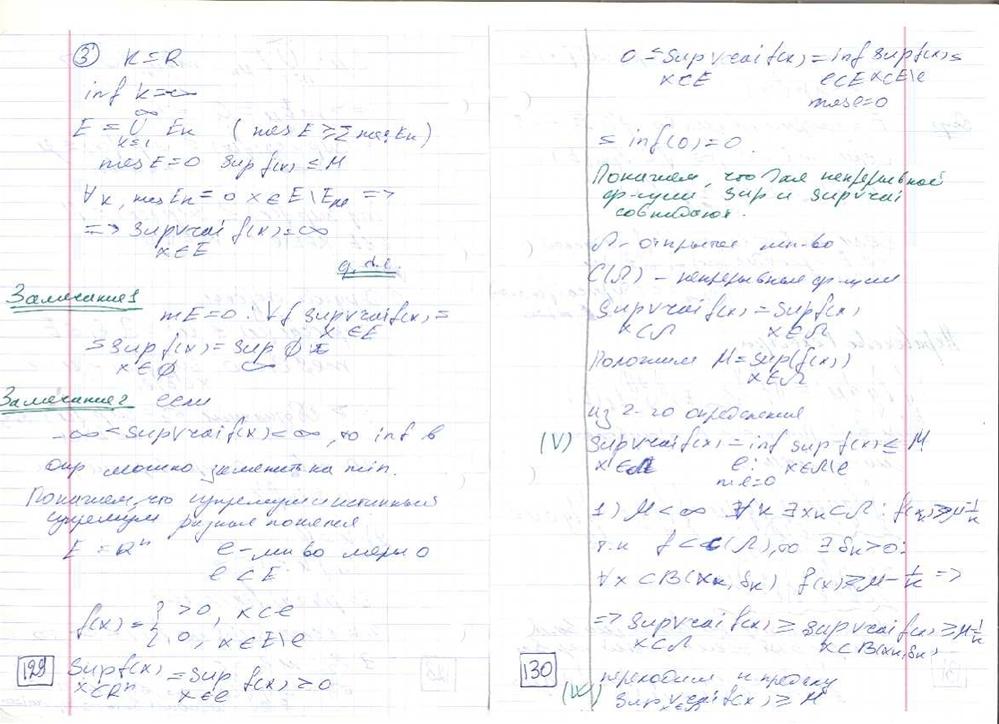 ③ K = R
inf K = ∞
E = ∪_{k=1}^{∞} E_k ( mes E ≤ Σ mes E_k )
mes E = 0 sup f(x) ≤ M
∀k, mes E_k = 0 x ∈ E \ E_k =>
=> sup vrai f(x) = ∞
x ∈ E
Замечание 1
mE = 0 : ∀f sup vrai f(x) =
x ∈ E
= sup f(x) = sup ∅ =
x ∈ ∅ - ∞
Замечание 2 если
-∞ < sup vrai f(x) < ∞, то inf в
опр можно заменить на min.
Покажем, что супремум и истинный
супремум разные понятия
E = Rⁿ e - мн-во меры 0
e ⊂ E
f(x) = { > 0, x ∈ e
{ 0, x ∈ E \ e
sup f(x) = sup f(x) > 0
x ∈ Rⁿ x ∈ e
129
0 ≤ sup vrai f(x) = inf sup f(x) ≤
x ∈ E e ⊂ E x ∈ E \ e
mes e = 0
≤ inf (0) = 0.
Покажем, что для непрерывной
ф-ции sup и sup vrai
совпадают.
Ω - открытое мн-во
C(Ω) - непрерывные ф-ции
sup vrai f(x) = sup f(x)
x ∈ Ω x ∈ Ω
Положим M = sup f(x)
x ∈ Ω
из 2-го определения
(V) sup vrai f(x) = inf sup f(x) ≤ M
x ∈ Ω e: x ∈ Ω \ e
m e = 0
1) M < ∞ ∀k ∃ x_k ∈ Ω : f(x_k) ≥ M - 1/k
т.к f ∈ C(Ω), то ∃ δ_k > 0 :
∀x ∈ B(x_k, δ_k) f(x) ≥ M - 1/k =>
=> sup vrai f(x) ≥ sup vrai f(x) ≥ M - 1/k
x ∈ Ω x ∈ B(x_k, δ_k)
130
переходим к пределу
sup vrai f(x) ≥ M
x ∈ Ω